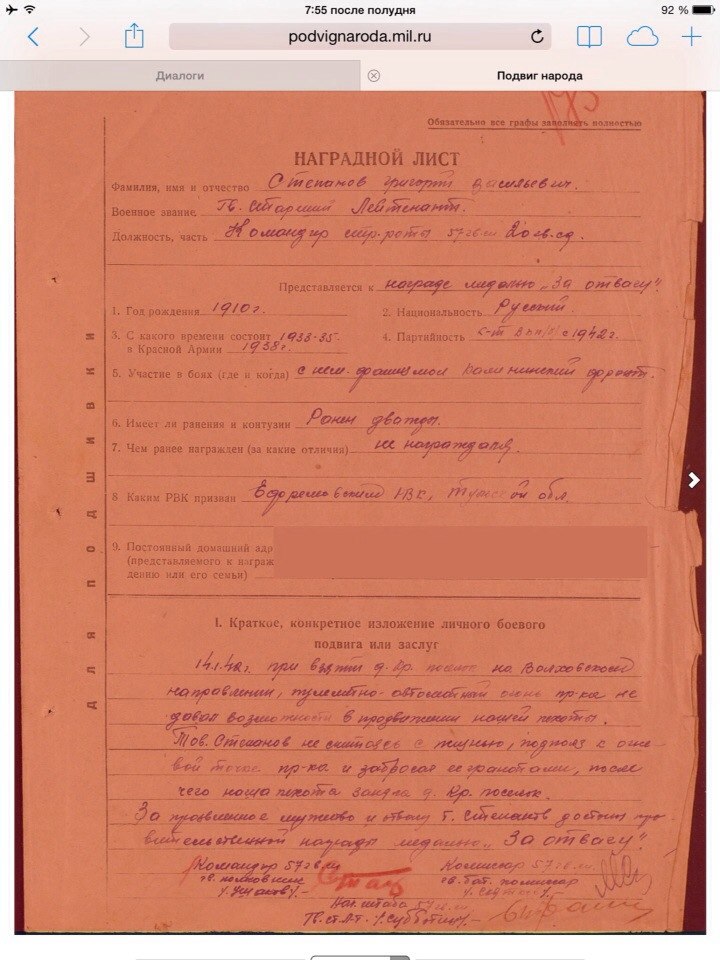 7:55 после полудня
92 %
podvignaroda.mil.ru
Диалоги
Подвиг народа
Обязательно все графы заполнять полностью
НАГРАДНОЙ ЛИСТ
Фамилия, имя и отчество Степанов Григорий Васильевич.
Военное звание Гв. Старший Лейтенант.
Должность, часть Командир роты 57 гв. сп. 20 гв. сд.
Представляется к награде медалью „За отвагу“
1. Год рождения 1910 г.
2. Национальность Русский
3. С какого времени состоит 1933-35.
в Красной Армии 1938 г.
4. Партийность к-т ВКП(б) с 1942 г.
5. Участие в боях (где и когда) с нем. фашизмом Калининский фронт.
6. Имеет ли ранения и контузии Ранен дважды.
7. Чем ранее награжден (за какие отличия) не награждался.
8. Каким РВК призван Ефремовским РВК, Тульской обл.
9. Постоянный домашний адр
(представляемого к награж
дению или его семьи)
I. Краткое, конкретное изложение личного боевого
подвига или заслуг
при взятии д. Кр. поселок на Волховском
направлении, пулеметно-автоматный огонь пр-ка не
давал возможности в продвижении нашей пехоты.
Тов. Степанов не считаясь с жизнью, подполз к огне-
вой точке пр-ка и забросал ее гранатами, после
чего наша пехота заняла д. Кр. поселок.
За проявленное мужество и отвагу т. Степанов достоин пра-
вительственной награды медалью „За отвагу“.
Командир 57 гв. сп
Комиссар 57 гв. сп
гв. полковник
гв. бат. комиссар
/Ушаков/
Нач. штаба 57 гв. сп
Гв. ст. л-т. /Субботин/
ДЛЯ ПОДШИВКИ